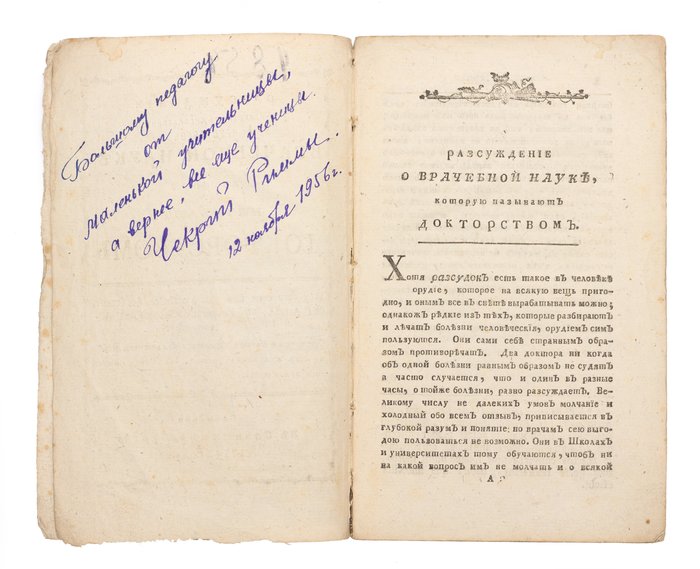 Большому педагогу
от
маленькой учительницы,
а вернее, все еще ученицы
Риммы.
12 ноября 1956 г.
РАЗСУЖДЕНІЕ
О ВРАЧЕБНОЙ НАУКѢ,
которую называютъ
ДОКТОРСТВОМЪ.
Хотя разсудокъ есть такое въ человѣкѣ
орудіе, которое на всякую вещь пригод-
но, и онымъ все въ свѣтѣ вырабатывать можно;
однакожъ рѣдкіе изъ тѣхъ, которые разбираютъ
и лѣчатъ болѣзни человѣческія, орудіемъ симъ
пользуются. Они сами себѣ страннымъ обра-
зомъ противорѣчатъ. Два доктора ни когда
объ одной болѣзни равнымъ образомъ не судятъ
а часто случается, что и одинъ въ разные
часы, о тойже болѣзни, разно разсуждаетъ. Ве-
ликому числу не далекихъ умовъ молчаніе и
холодный обо всемъ отзывъ, приписывается въ
глубокой разумъ и понятіе; но врачамъ сею выго-
дою пользоваться не возможно. Они въ Школахъ
и университетахъ тому обучаются, чтобъ ни
на какой вопросъ имъ не молчать и о всякой
А